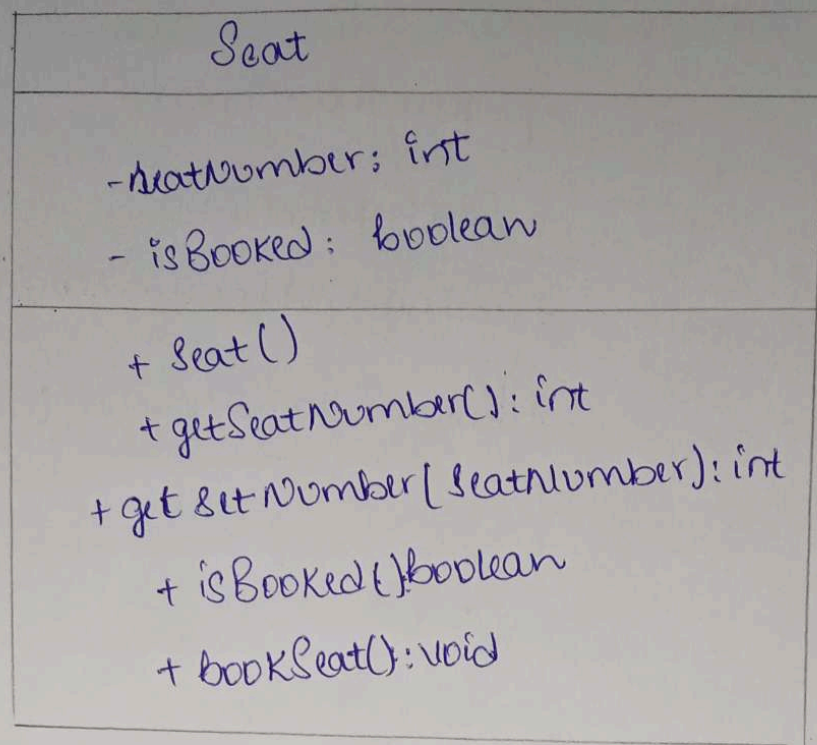 Seat
-seatNumber: int
- isBooked: boolean
+ Seat()
+ getSeatNumber(): int
+ get set Number(SeatNumber): int
+ isBooked():boolean
+ bookSeat():void